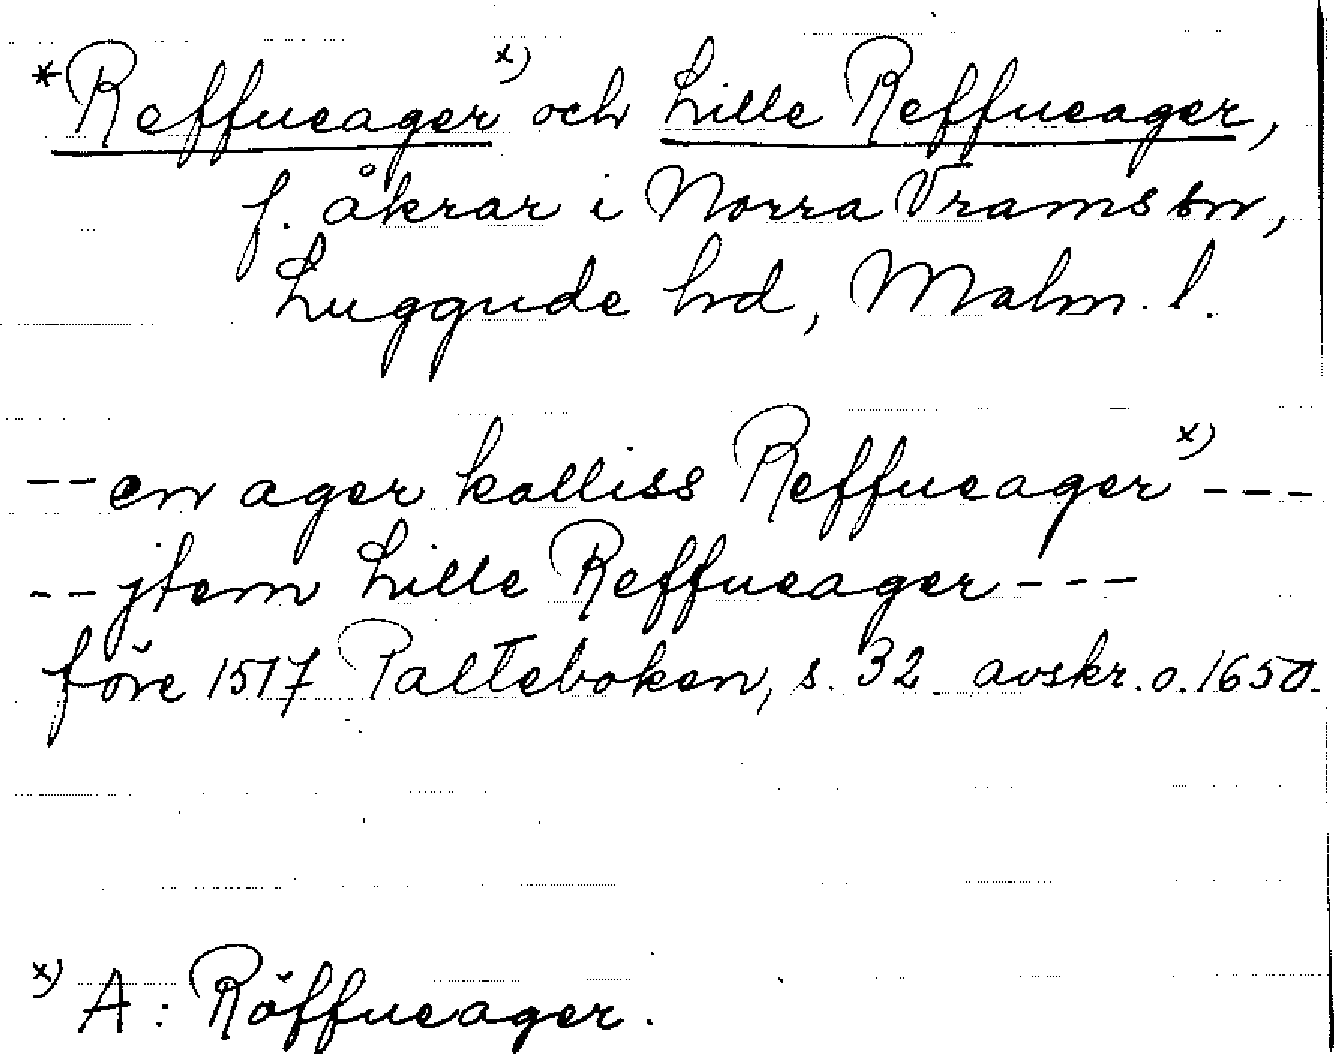 *Reffueager x) och Lille Reffueager,
f. åkrar i Norra Vrams sn,
Luggude hd, Malm. l.
-- en ager kalliss Reffueager x) ---
-- jtem Lille Reffueager ---
före 1517 Palteboken, s. 32 avskr. o. 1650.
x) A: Röffueager.